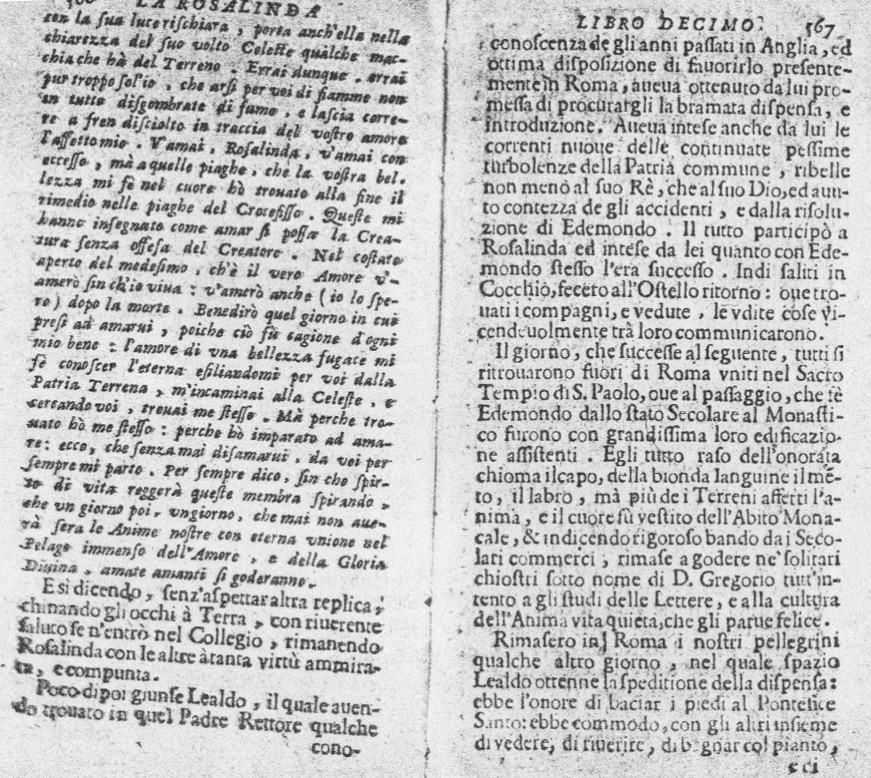 LA ROSALINDA
con la sua luce rischiara, porta anch'ella nella
chiarezza del suo volto Celeste qualche mac-
chia che hà del Terreno. Errai dunque. errai
pur troppo sol'io, che arsi per voi di fiamme non
in tutto disgombrate di fumo, e lascia corre-
re a fren disciolto in traccia del vostro amore
l'affetto mio. V'amai, Rosalinda, v'amai con
eccesso, mà a quelle piaghe, che la vostra bel-
lezza mi fè nel cuore hò trouato alla fine il
rimedio nelle piaghe del Crocefisso. Queste mi
hanno insegnato come amar si possa la Crea-
tura senza offesa del Creatore. Nel costato
aperto del medesimo, ch'è il vero Amore v'-
amerò sin ch'io viua: v'amerò anche (io lo spe-
ro) dopo la morte. Benedirò quel giorno in cui
presi ad amarui, poiche ciò fù cagione d'ogni
mio bene: l'amore di vna bellezza fugace mi
fè conoscer l'eterna esiliandomi per voi dalla
Patria Terrena, m'incaminai alla Celeste, e
cercando voi, trouai me stesso. Mà perche tro-
uato hò me stesso: perche hò imparato ad ama-
re: ecco, che senza mai disamarui, da voi per
sempre mi parto. Per sempre dico, sin che spir-
to di vita reggerà queste membra spirando,
che vn giorno poi, vn giorno, che mai non aue-
rà sera le Anime nostre con eterna vnione nel
Pelago immenso dell'Amore, e della Gloria
Diuina, amate amanti si goderanno.
E sì dicendo, senz'aspettar altra replica,
chinando gli occhi à Terra, con riuerente
saluto se n'entrò nel Collegio, rimanendo
Rosalinda con le altre à tanta virtù ammira-
ta, e compunta.
Poco dipoi giunse Lealdo, il quale auen-
do trouato in quel Padre Rettore qualche
cono-
LIBRO DECIMO. 567
conoscenza de gli anni passati in Anglia, ed
ottima disposizione di fauorirlo presente-
mente in Roma, aueua ottenuto da lui pro-
messa di procurargli la bramata dispensa, e
introduzione. Aueua intese anche da lui le
correnti nuoue delle continuate pessime
turbolenze della Patria commune, ribelle
non meno al suo Rè, che al suo Dio, ed auu-
to contezza de gli accidenti, e dalla risolu-
zione di Edemondo. Il tutto participò a
Rosalinda ed intese da lei quanto con Ede-
mondo stesso l'era successo. Indi saliti in
Cocchio, fecero all'Ostello ritorno: oue tro-
uati i compagni, e vedute, le vdite cose vi-
cendeuolmente trà loro communicarono.
Il giorno, che successe al seguente, tutti si
ritrouarono fuori di Roma vniti nel Sacro
Tempio di S. Paolo, oue al passaggio, che fè
Edemondo dallo stato Secolare al Monasti-
co furono con grandissima loro edificazio-
ne assistenti. Egli tutto raso dell'onorata
chioma il capo, della bionda lanugine il mẽ-
to, il labro, mà più de i Terreni affetti l'a-
nima, e il cuore fù vestito dell'Abito Mona-
cale, & indicendo rigoroso bando da i Seco-
lari commerci, rimase a godere ne' solitari
chiostri sotto nome di D. Gregorio tutt'in-
tento a gli studi delle Lettere, e alla cultura
dell'Anima vita quieta, che gli parue felice.
Rimasero in Roma i nostri pellegrini
qualche altro giorno, nel quale spazio
Lealdo ottenne la speditione della dispensa:
ebbe l'onore di baciar i piedi al Pontefice
Santo: ebbe commodo, con gli altri insieme
di vedere, di riuerire, di bagnar col pianto,
e ci